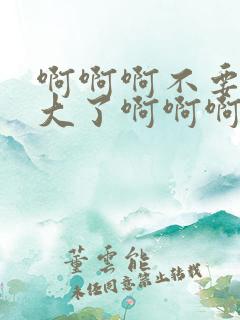 啊啊啊不要
大了啊啊啊
董雲能
未经同意禁止转载